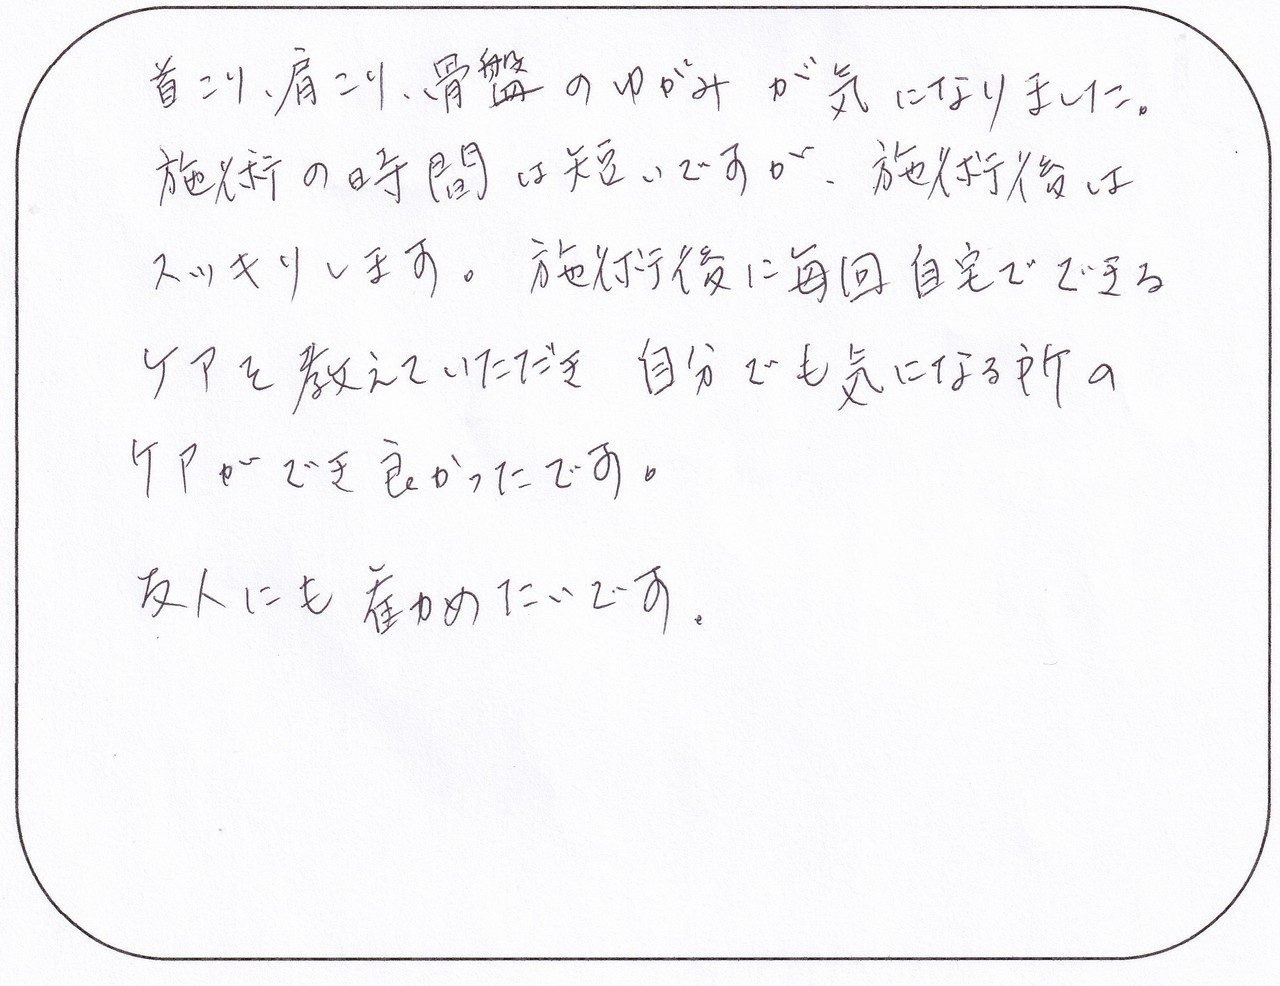 首こり、肩こり、骨盤のゆがみが気になりました。
施術の時間は短いですが、施術後は
スッキリします。施術後に毎回自宅でできる
ケアを教えていただき自分でも気になる所の
ケアができ良かったです。
友人にも勧めたいです。